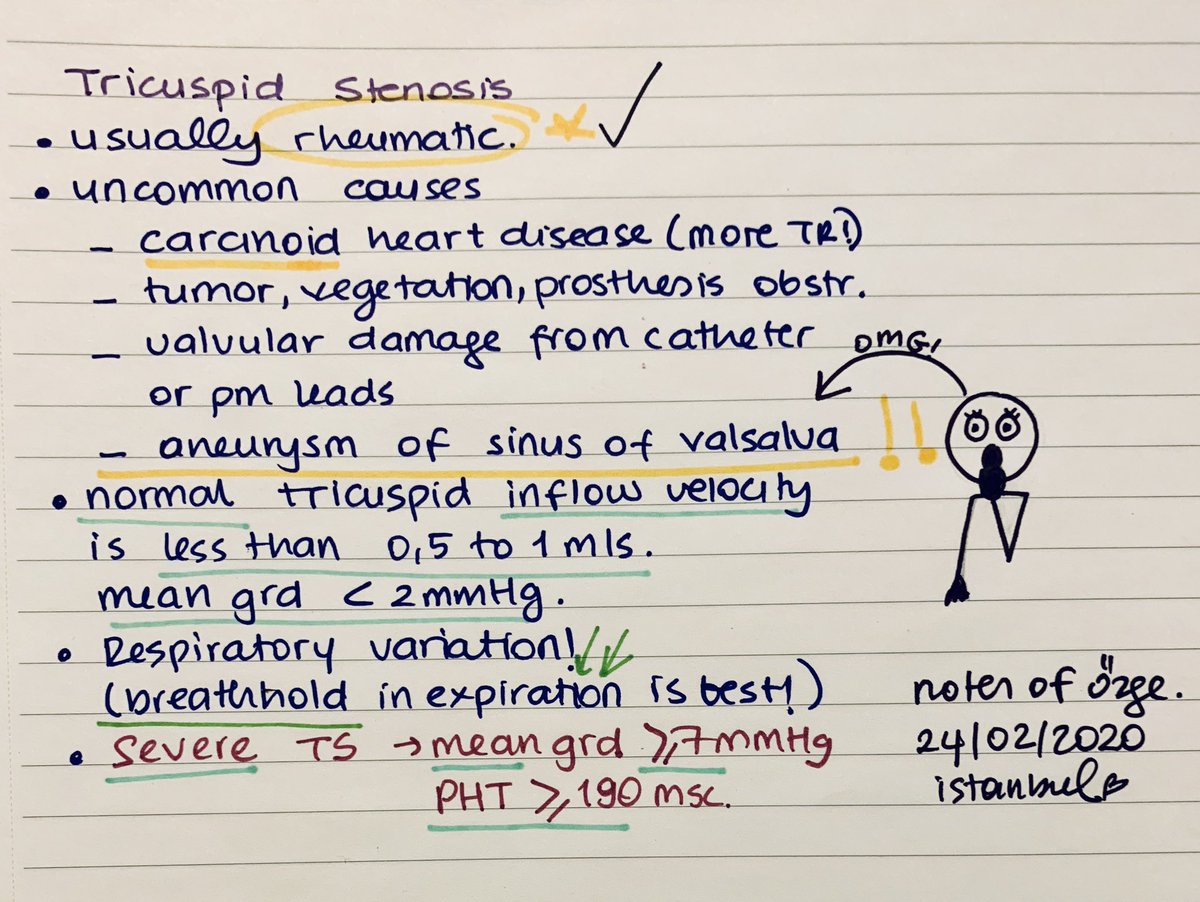 Tricuspid Stenosis
• usually rheumatic.
• uncommon causes
– carcinoid heart disease (more TR!)
– tumor, vegetation, prosthesis obstr.
– valvular damage from catheter
or pm leads
OMG!
– aneurysm of sinus of valsalva !!
• normal tricuspid inflow velocity
is less than 0,5 to 1 m/s.
mean grd < 2mmHg.
• Respiratory variation!
(breathhold in expiration is best!)
• Severe TS → mean grd ≥7mmHg
PHT ≥190 msc.
notes of Özge.
24/02/2020
istanbul